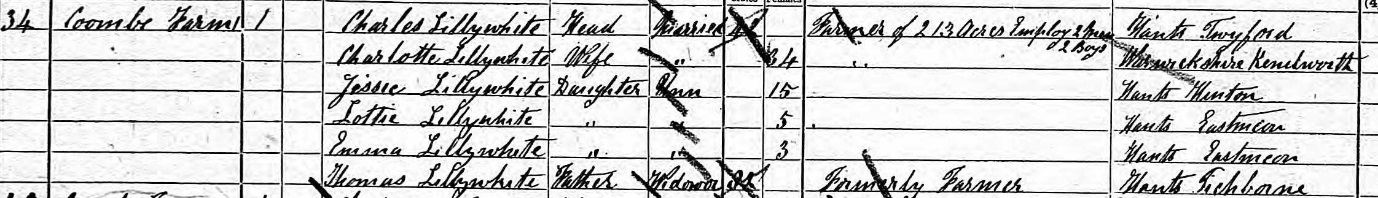 34 Coombe Farm 1 Charles Lillywhite Head Married Farmer of 213 Acres Employ 2 Men 2 Boys Hants Twyford
Charlotte Lillywhite Wife " 34 " Warwickshire Kenelworth
Jessee Lillywhite Daughter Unn 15 Hants Hinton
Lottie Lillywhite " " 5 Hants Eastmeon
Emma Lillywhite " " 3 Hants Eastmeon
Thomas Lillywhite Father Widower Formerly Farmer Hants Tichborne